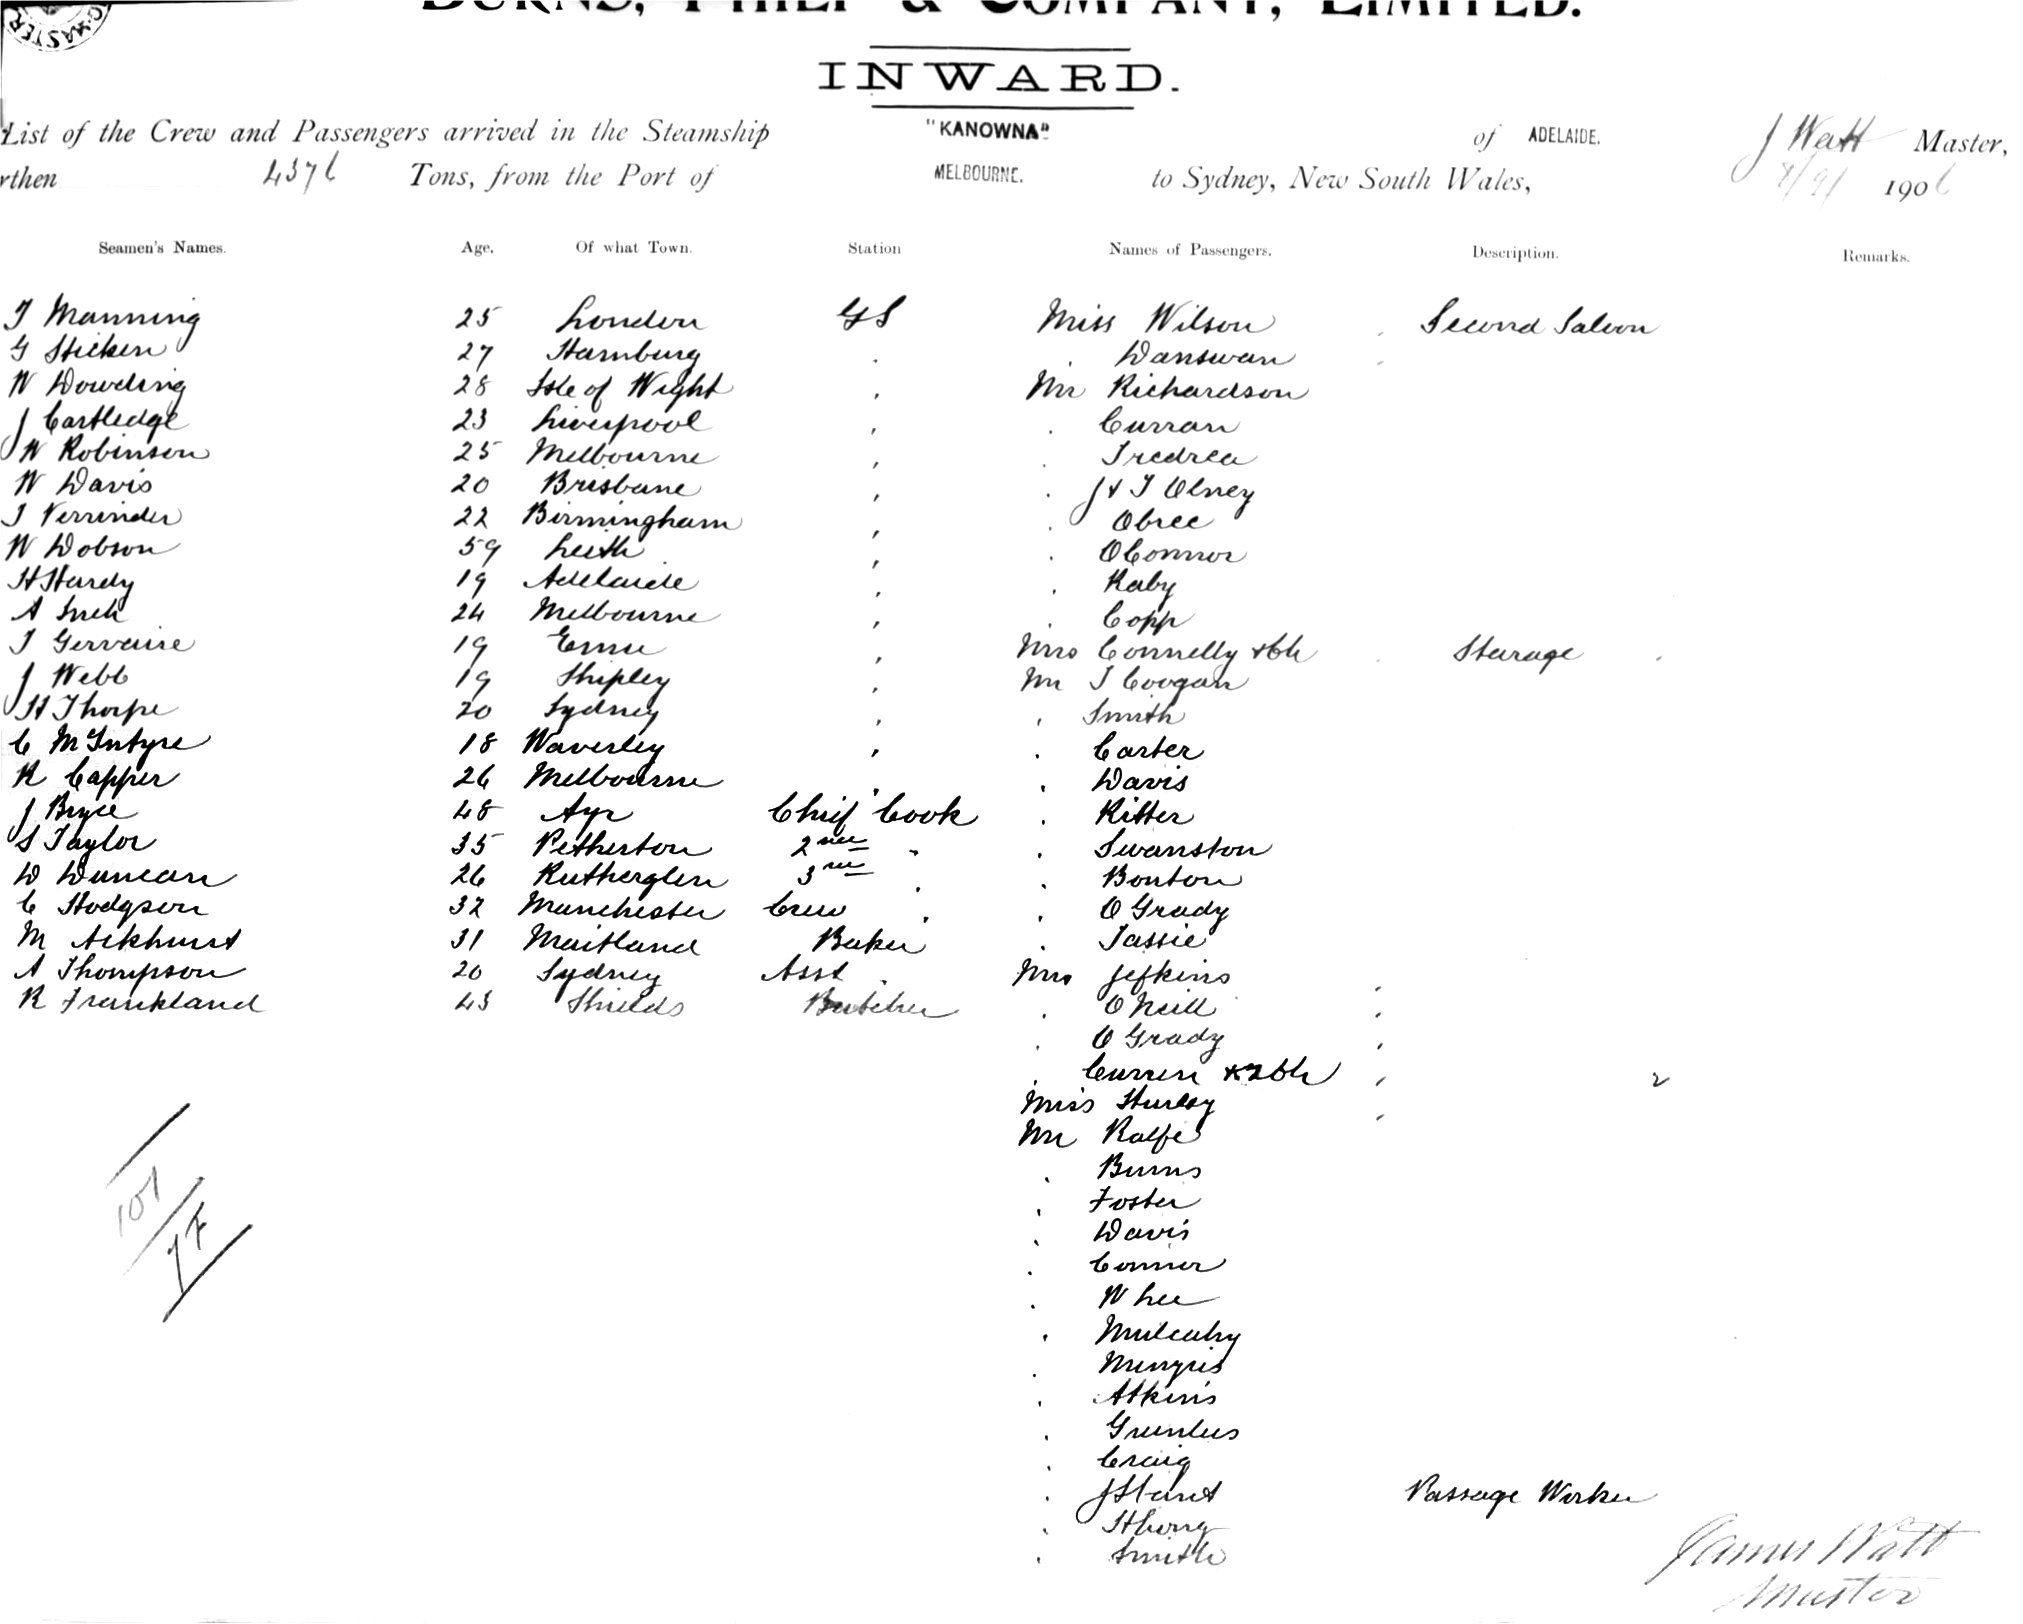 BURNS, PHILP & COMPANY, LIMITED.
INWARD.
List of the Crew and Passengers arrived in the Steamship "KANOWNA" of ADELAIDE. J Watt Master,
rthen 4376 Tons, from the Port of MELBOURNE. to Sydney, New South Wales, 8/9/ 1906
Seamen's Names. Age. Of what Town. Station Names of Passengers. Description. Remarks.
T Manning 25 London GS Miss Wilson Second Saloon
G Sticken 27 Hamburg Danswan
W Dowding 28 Isle of Wight Mr Richardson
J Cartledge 23 Liverpool Curran
W Robinson 25 Melbourne Tredrea
W Davis 20 Brisbane J & T Olney
T Verrinder 22 Birmingham Obree
W Dobson 59 Leith O'Connor
H Hardy 19 Adelaide Raby
A 24 Melbourne Copp
T Gervaise 19 Emu Mrs Connelly & Ch Sterage
J Webb 19 Shipley Mr T Coogan
H Thorpe 20 Sydney Smith
C McIntyre 18 Waverley Carter
R Capper 26 Melbourne Davis
J Bryce 48 Ayr Chief Cook Ritter
S Taylor 35 Petherton 2nd Swanston
D Duncan 26 Rutherglen 3rd Bonton
C Hodgson 32 Manchester Crew O Grady
M Ackhurst 31 Maitland Baker Tassie
A Thompson 20 Sydney Asst Mrs Jefkins
R Frankland 43 Shields Butcher O Neill
O Grady
Curren & 2 Ch 2
Miss Hurley
Mr Ralfe
Burns
Foster
Davis
Connor
W Lee
Mulcahy
Atkins
Craig
J Hunt Passage Worker
H Long
Smith
101
James Watt
Master